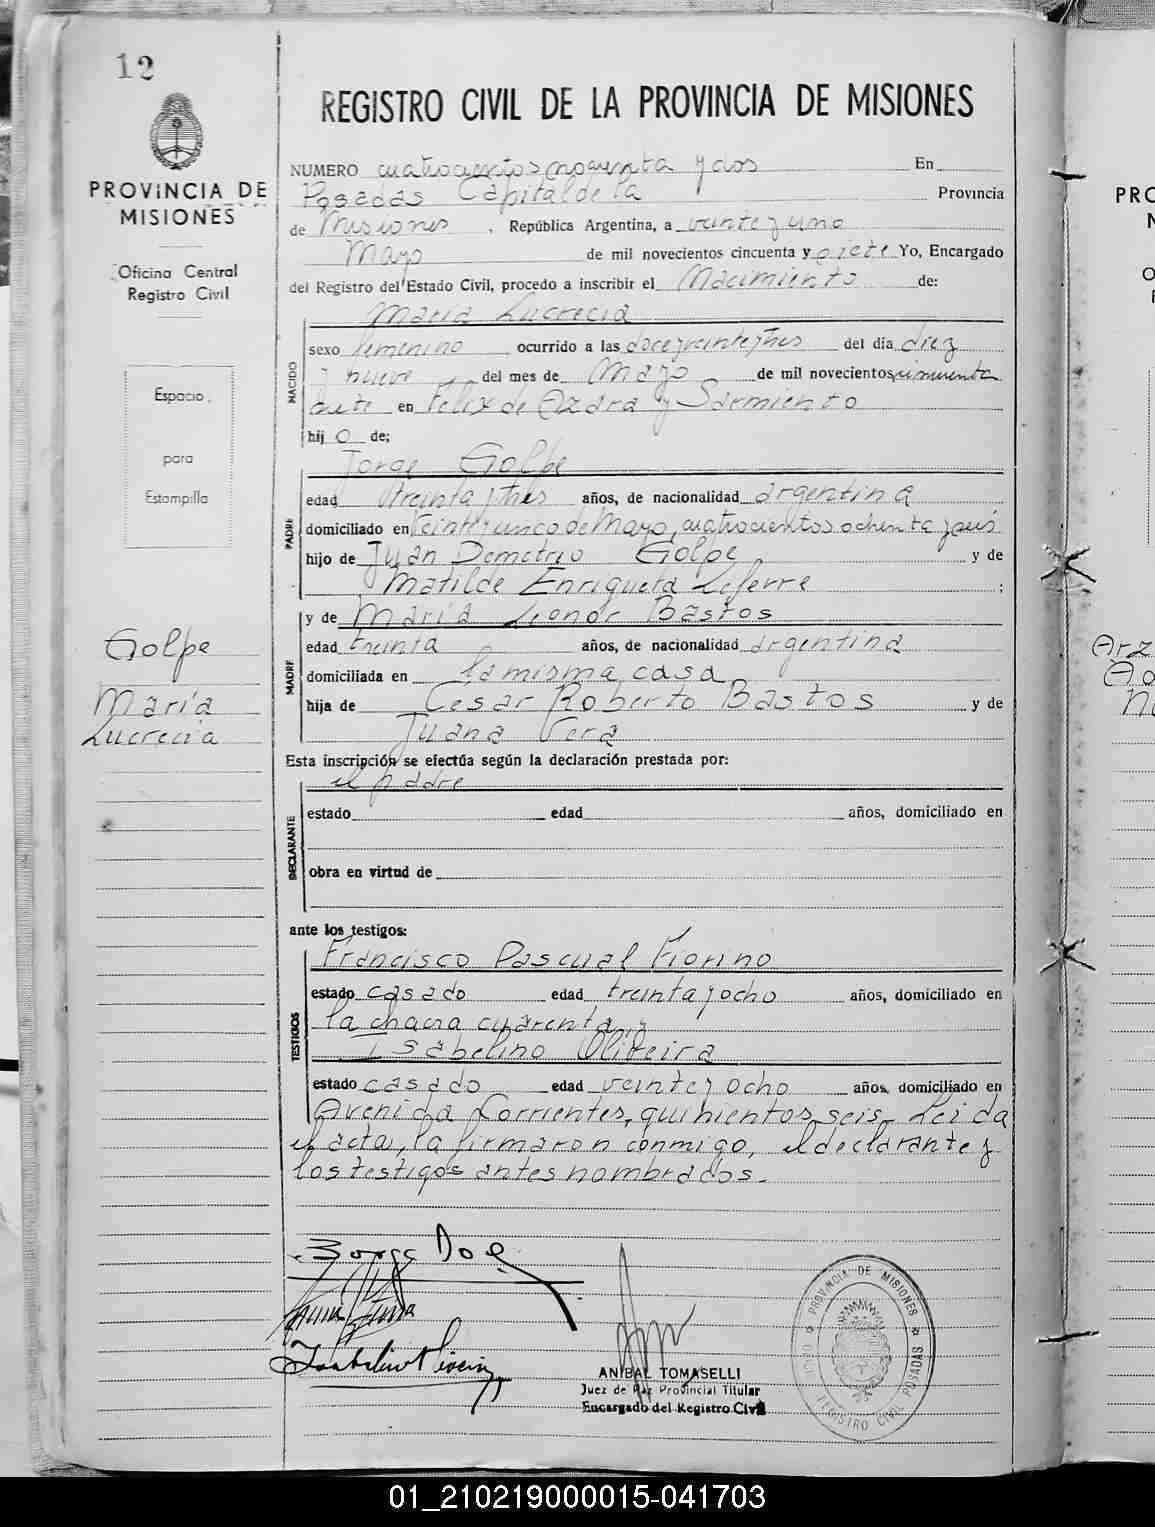 12
PROVINCIA DE
MISIONES
Oficina Central
Registro Civil
Espacio
para
Estampilla
Golpe
María
Lucrecia
REGISTRO CIVIL DE LA PROVINCIA DE MISIONES
NUMERO cuatrocientos noventa y dos En
Posadas Capital de la Provincia
de Misiones, República Argentina, a veinte y uno
Mayo de mil novecientos cincuenta y siete Yo, Encargado
del Registro del Estado Civil, procedo a inscribir el Nacimiento de:
María Lucrecia
NACIDO
sexo femenino ocurrido a las doce y veinte y tres del día diez
y nueve del mes de Mayo de mil novecientos cincuenta
siete en Felix de Azara y Sarmiento
hij o de;
Jorge Golpe
PADRE
edad treinta y tres años, de nacionalidad argentina
domiciliado en Veinte y cinco de Mayo, cuatrocientos ochenta y seis
hijo de Juan Demetrio Golpe y de
Matilde Enriqueta Leferre ;
y de María Leonor Bastos
MADRE
edad treinta años, de nacionalidad argentina
domiciliada en la misma casa
hija de Cesar Roberto Bastos y de
Juana Vera
Esta inscripción se efectúa según la declaración prestada por:
el padre
DECLARANTE
estado edad años, domiciliado en
obra en virtud de
ante los testigos:
Francisco Pascual Fiorino
TESTIGOS
estado casado edad treinta y ocho años, domiciliado en
la chacra cuarenta y
Isabelino Oliveira
estado casado edad veinte y ocho años, domiciliado en
Avenida Corrientes, quinientos seis. Leida
el acta, la firmaron conmigo, el declarante y
los testigos antes nombrados.
ANIBAL TOMASELLI
Juez de Paz Provincial Titular
Encargado del Registro Civil
PROVINCIA DE MISIONES
REGISTRO CIVIL POSADAS
01_210219000015-041703